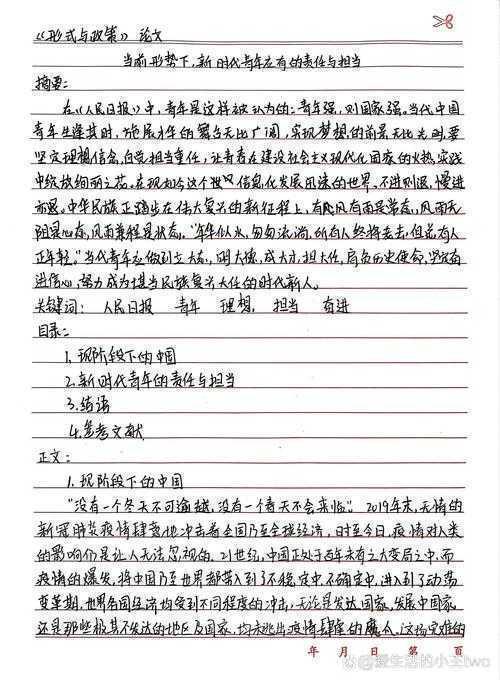 《形式与政策》论文
当前形势下,新时代青年应有的责任与担当
摘要:
在《人民日报》中,青年是这样被认为的:青年强,则国家强。当代中国
青年生逢其时,施展才华的舞台无比广阔,实现梦想的前景无比光明,要
坚定理想信念,自觉担当重任,让青春在建设社会主义现代化国家的火热实践
中绽放绚丽之花。在现如今这个世界信息化发展迅速的世界,不进则退,慢进
亦退。中华民族正踏步在伟大复兴的新征程上,有风有雨是常态,风雨无
阻是心态,风雨兼程是状态。“年年似水,匆匆流淌,所有人终将老去,但总有人
正年轻。”当代青年应做到立大志,明大德,成大才,担大任,肩负历史使命,坚定前
进信心,努力成为堪当民族复兴大任的时代新人。
关键词: 人民日报 青年 理想, 担当 奋进
目录:
1.现阶段下的中国
2.新时代青年的责任与担当
3.结语
4.参考文献
正文:
1.现阶段下的中国
“没有一个冬天不可逾越,没有一个春天不会来临”。2019年末,无情的
新冠肺炎疫情肆意地冲击着全国乃至全球经济,时至今日,疫情对人类
的影响仍是让人无法忽视的。21世纪,中国正处于百年未有之大变局之中,而
疫情的爆发,将中国乃至世界都带入到了不稳定中,不确定中,进入到了动荡
变革期,世界各国经济均受到不同程度的冲击,无论是发达国家,发展中国家,
还是那些极其不发达的地区及国家,均未逃出疫情肆虐的魔爪。这场灾难的
年 月 日 第 页
@爱生活的小王two